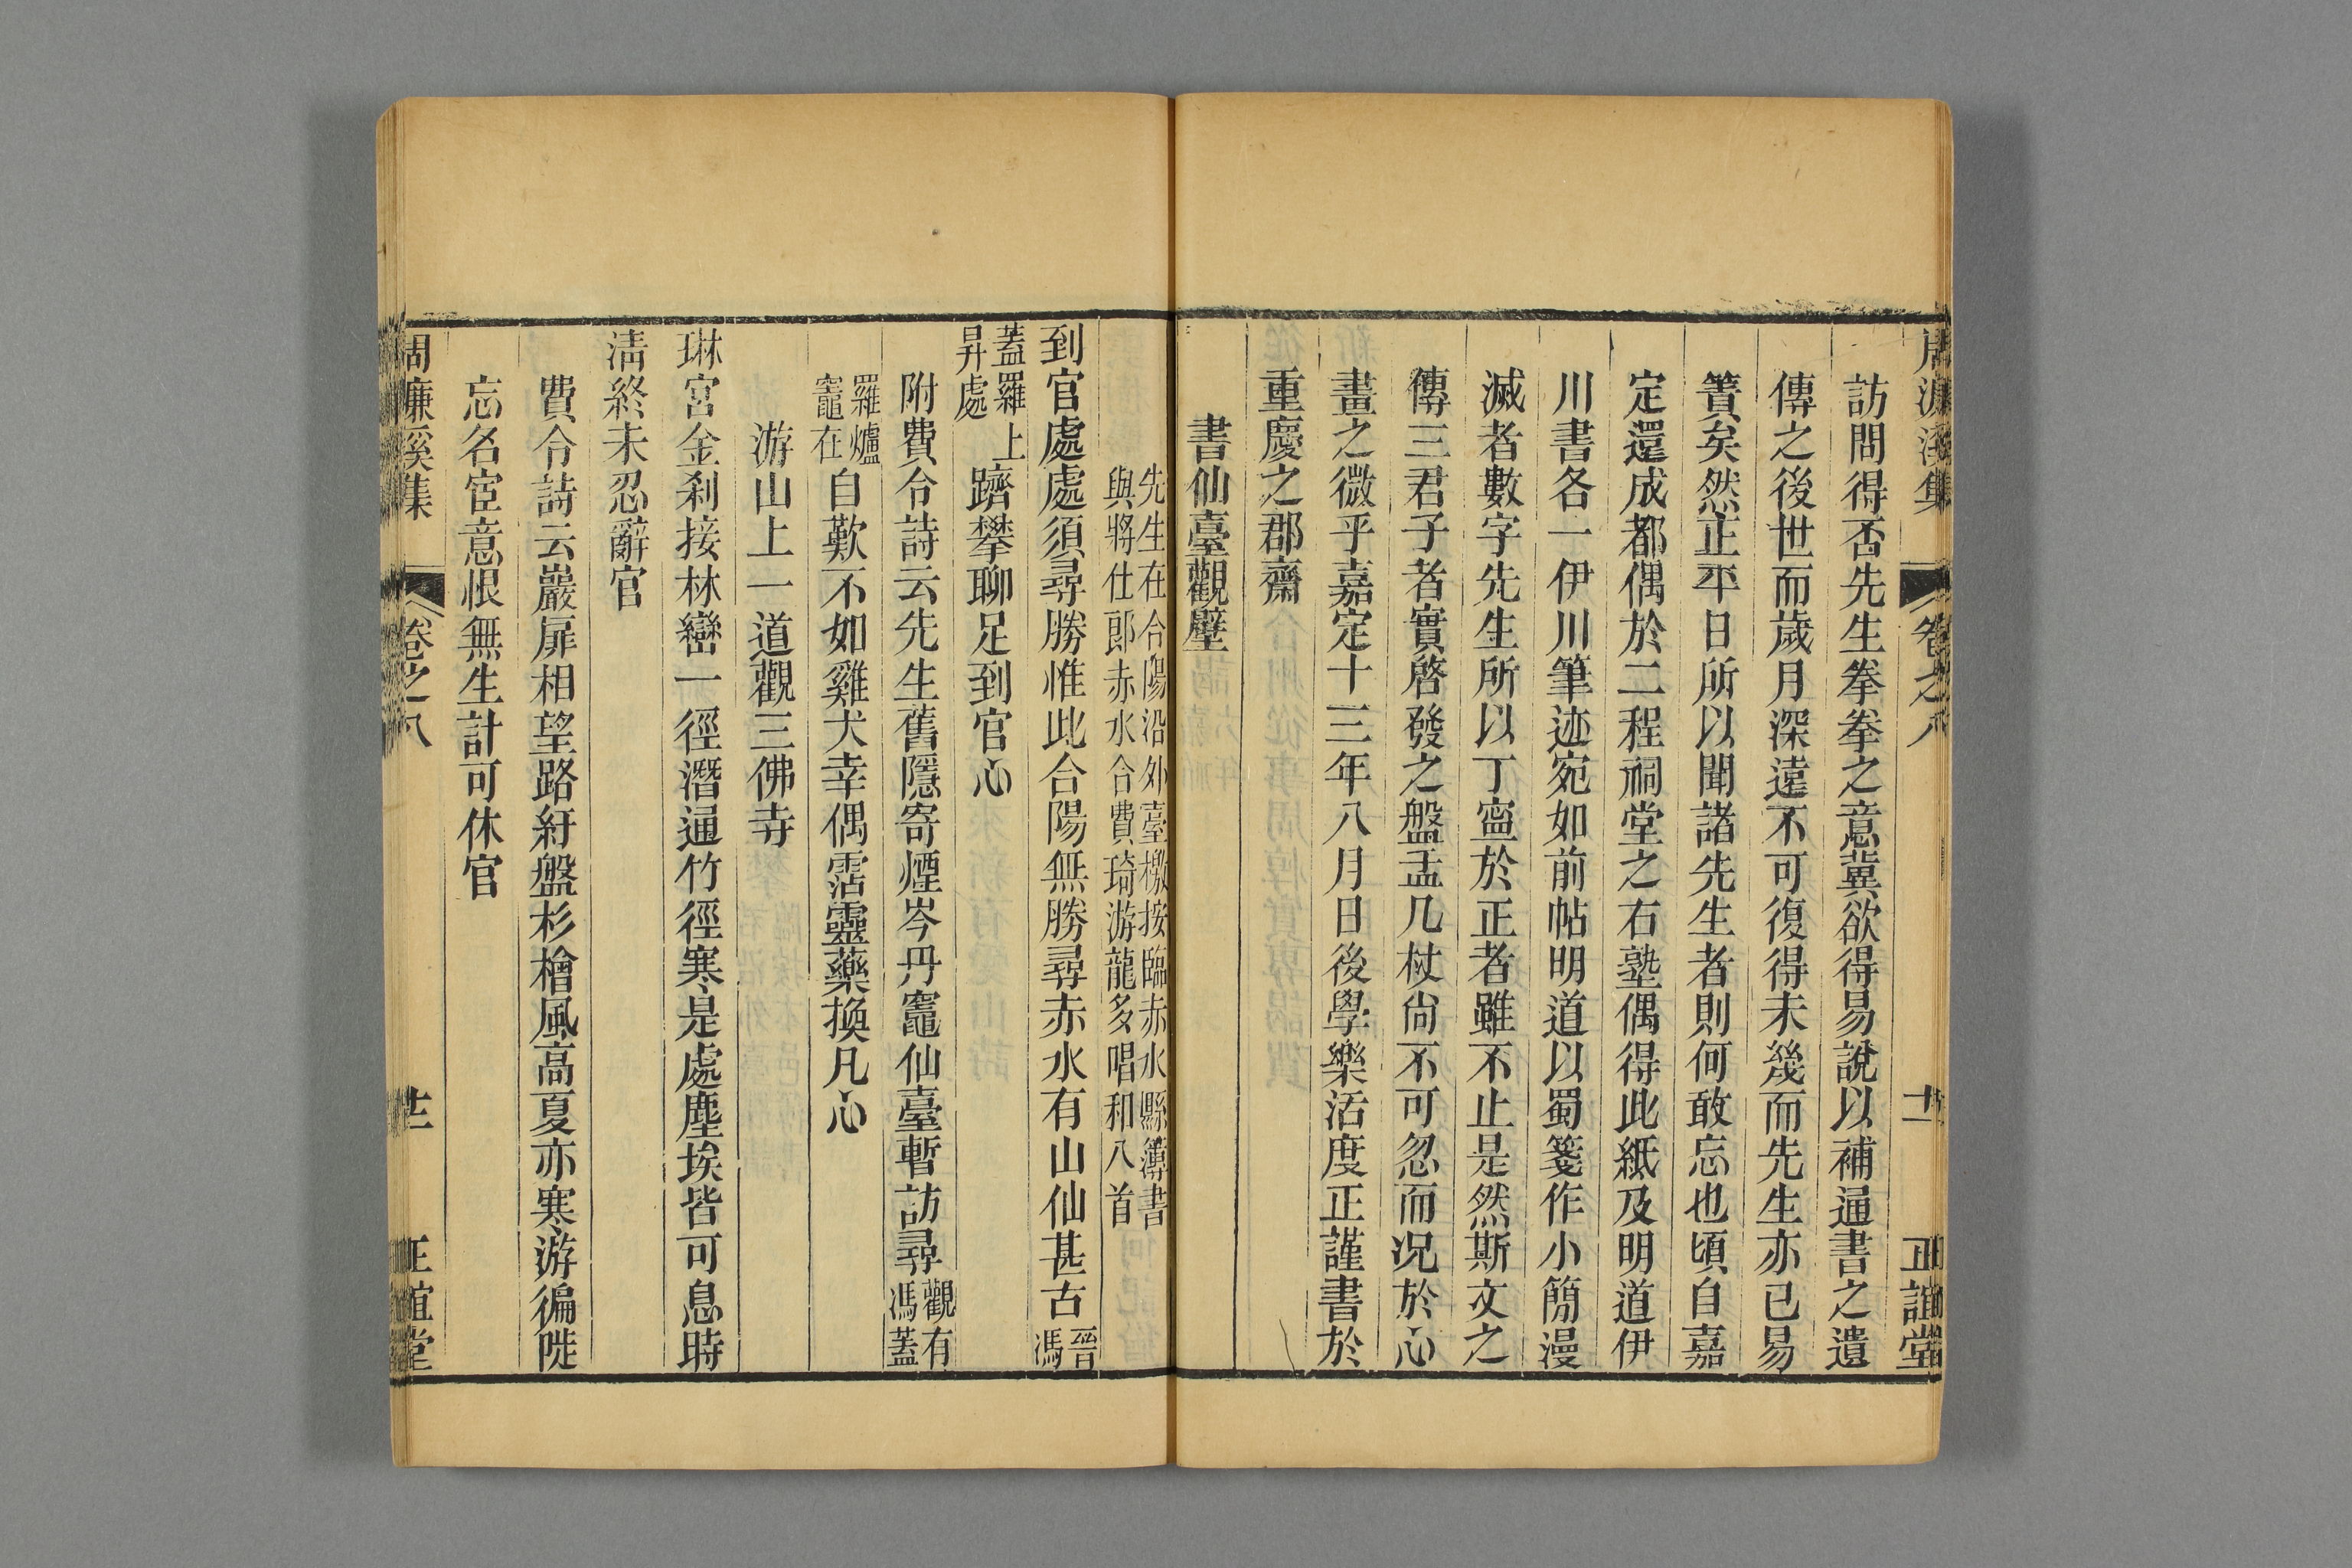 周濂溪集
卷之八
十一
正誼堂
訪問得否先生拳拳之意冀欲得易說以補通書之遺
傳之後世而歲月深遠不可復得未幾而先生亦已易
簀矣然正平日所以聞諸先生者則何敢忘也頃自嘉
定還成都偶於二程祠堂之右塾偶得此紙及明道伊
川書各一伊川筆迹宛如前帖明道以蜀箋作小簡漫
滅者數字先生所以丁寧於正者雖不止是然斯文之
傳三君子者實啓發之盤盂几杖尙不可忽而况於心
畫之微乎嘉定十三年八月日後學樂活度正謹書於
重慶之郡齋
書仙臺觀壁
先生在合陽沿外臺檄按臨赤水縣簿書
與將仕郎赤水合費琦游龍多唱和八首
到官處處須尋勝惟此合陽無勝尋赤水有山仙甚古晉馮
蓋羅上昇處躋攀聊足到官心
附費令詩云先生舊隱寄煙岑丹竈仙臺暫訪尋觀有馮蓋
羅爐竈在自歎不如雞犬幸偶霑靈藥換凡心
游山上一道觀三佛寺
琳宮金刹接林巒一徑潛通竹徑寒是處塵埃皆可息時
淸終未忍辭官
費令詩云巖扉相望路紆盤杉檜風高夏亦寒游徧陡
忘名宦意恨無生計可休官
周濂溪集
卷之八
十二
正誼堂